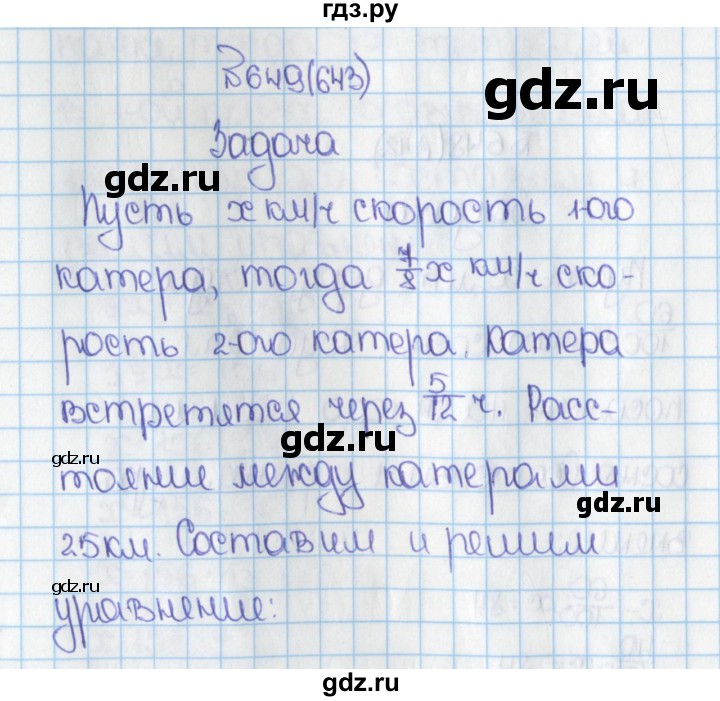 гдз.ру
№649(643)
gdz.ru
Задача
gdz.ru
Пусть x км/ч скорость 1-ого
катера, тогда 7/8 x км/ч ско-
рость 2-ого катера. Катера
встретятся через 5/12 ч. Расс-
gdz.ru
gdz.ru
тояние между катерами
25км. Составим и решим
gdz.ru
уравнение:
gdz.ru